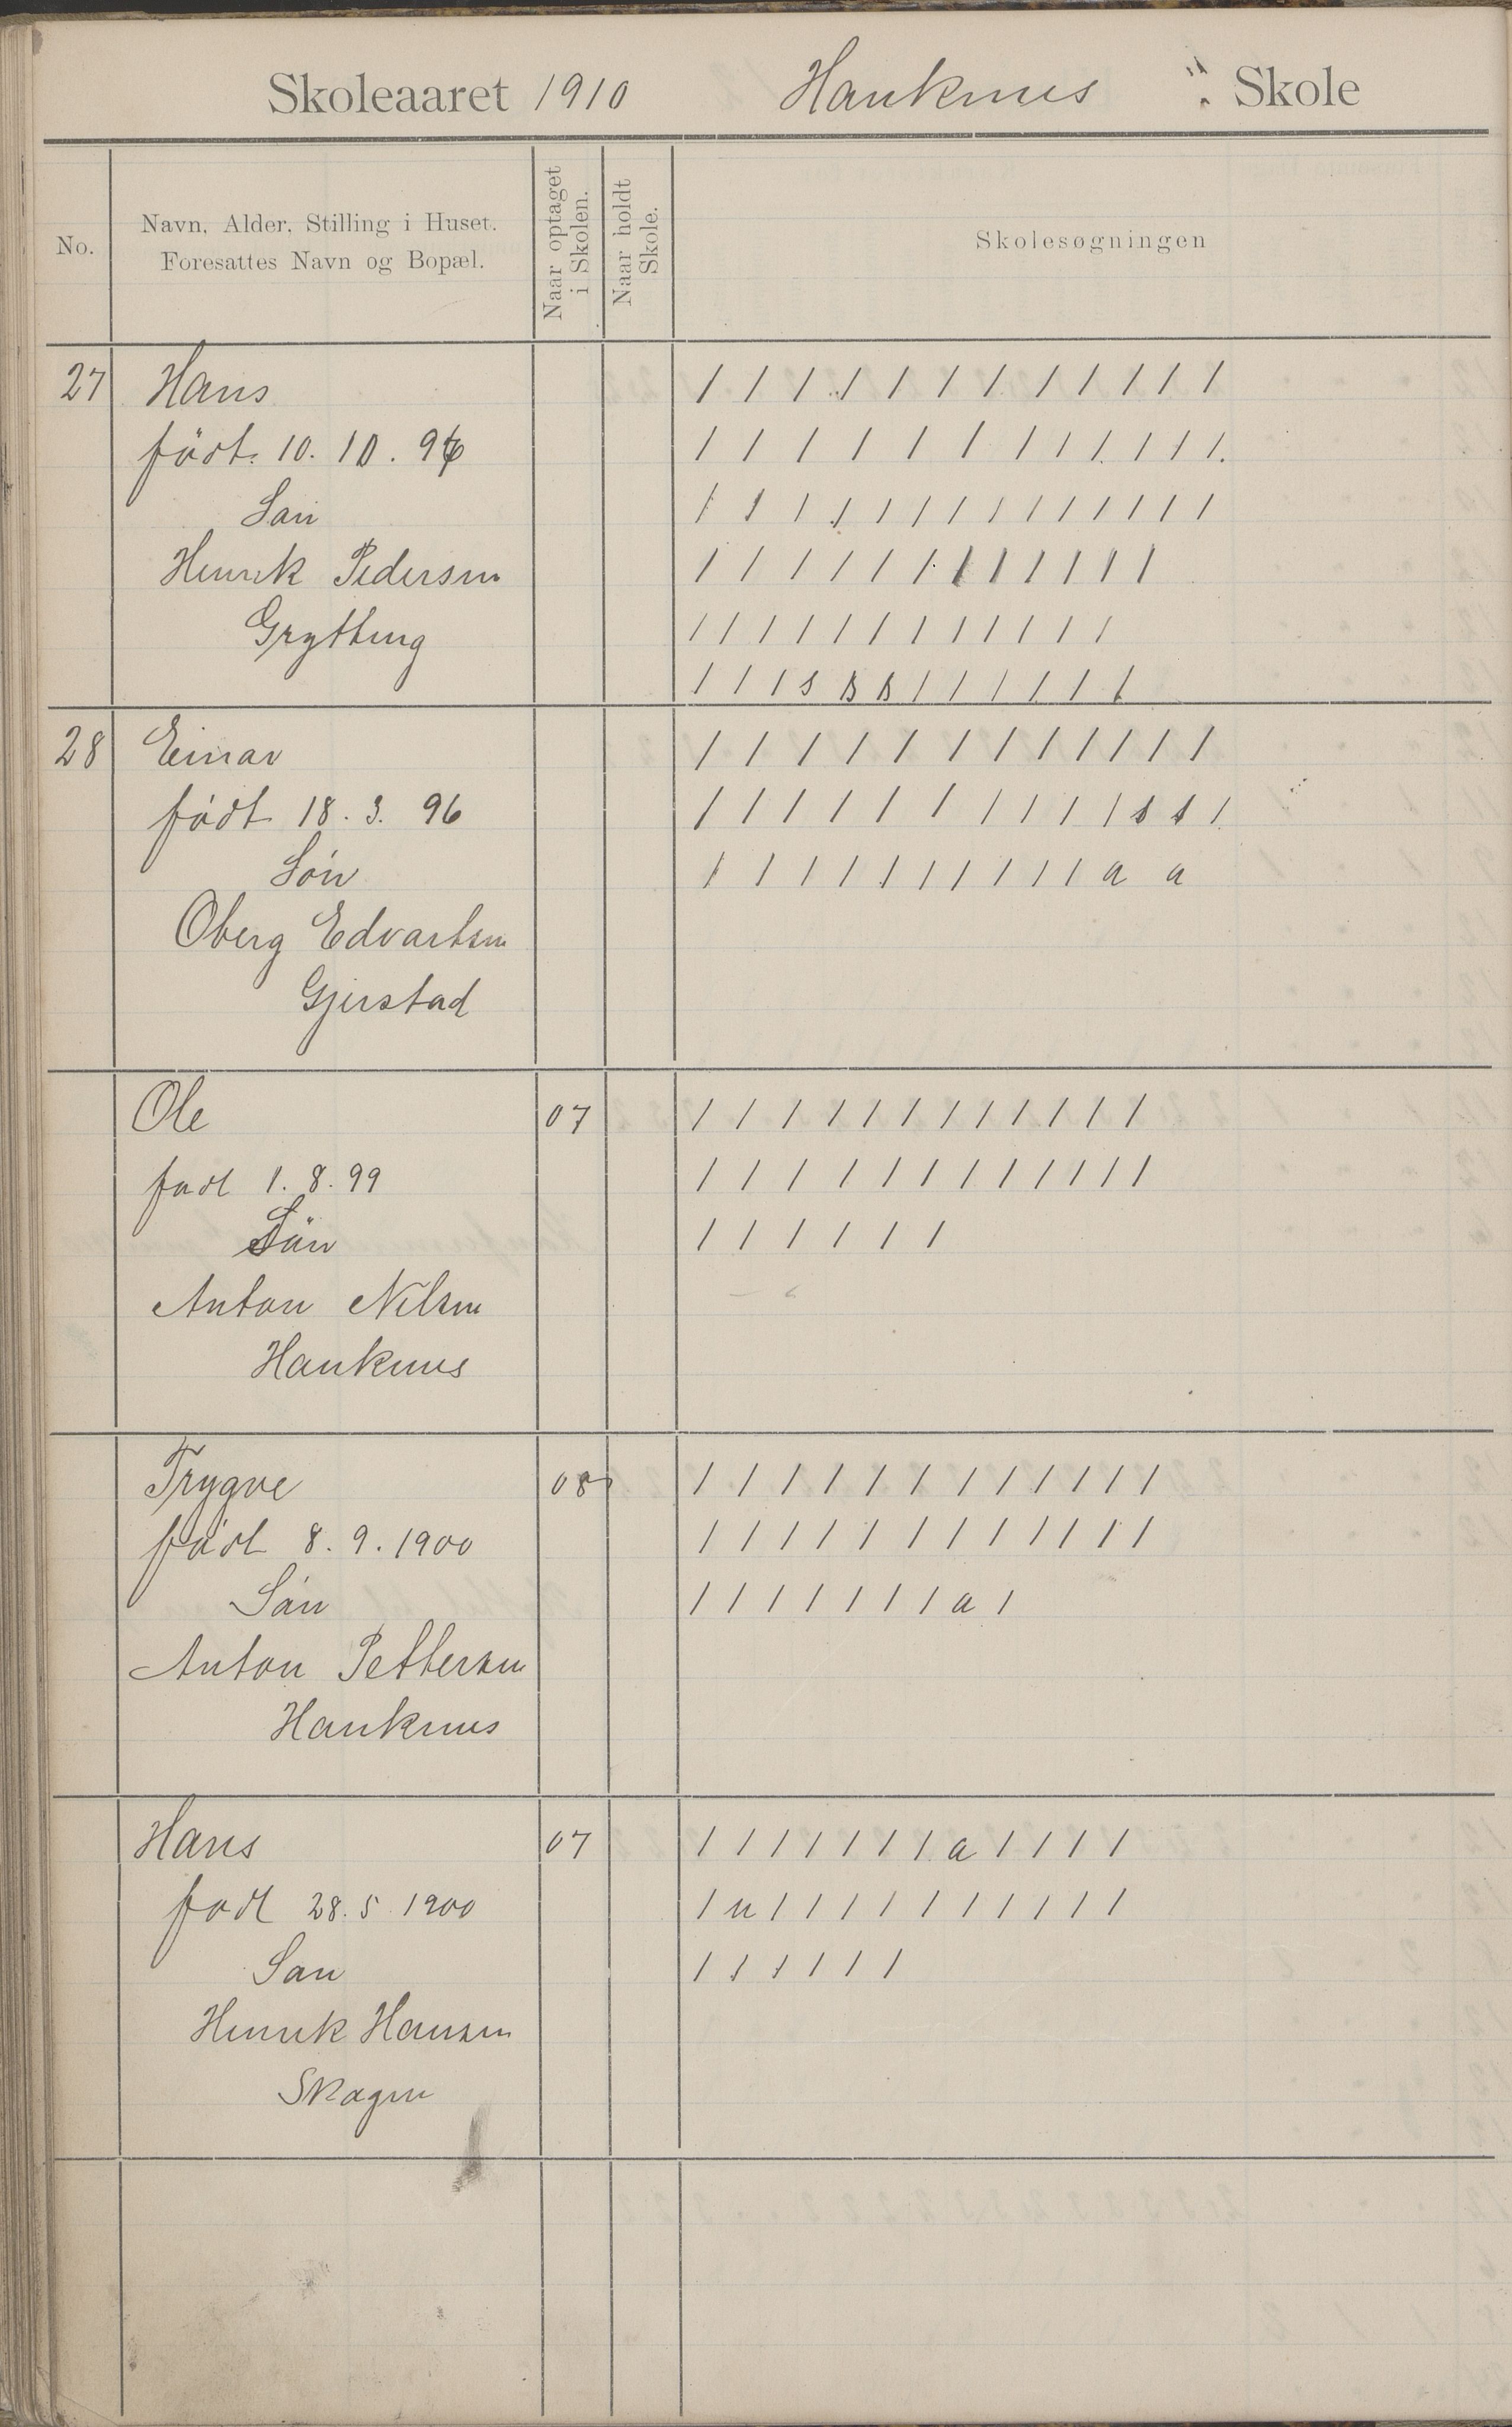 Skoleaaret 1910 Hanknæs " . Skole
No.
Navn, Alder, Stilling i Huset.
Foresattes Navn og Bopæl.
Naar optaget
i Skolen.
Naar holdt
Skole.
Skolesøgningen
27 Hans / / / / / / / / / / / /
født. 10. 10. 96 / / / / / / / / / / / /
Søn / / / / / / / / / / / / /
Henrik Pedersen / / / / / / / / / / / /
Grytting / / / / / / / / / / / /
/ / / s s s / / / / / /
28 Einar / / / / / / / / / / / /
født 18. 3. 96 / / / / / / / / / / s s /
Søn / / / / / / / / / / a a
Oberg Edvartsen
Gjerstad
Ole 07 / / / / / / / / / / / /
født 1. 8. 99 / / / / / / / / / / / /
Søn / / / / / /
Anton Nilsen
Hanknæs
Trygve 08 / / / / / / / / / / / /
født 8. 9. 1900 / / / / / / / / / / / /
Søn / / / / / / / a /
Anton Pettersen
Hanknæs
Hans 07 / / / / / / / a / / / /
født 28. 5 1900 / u / / / / / / / / / /
Søn / / / / / /
Henrik Hansen
Skagen